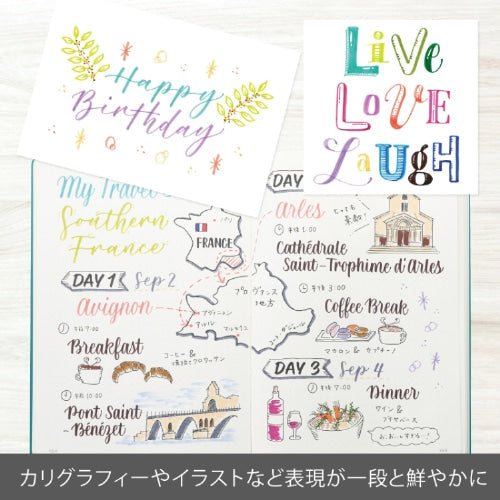 Happy
Birthday
Live
LOVE
Laugh
My Travel
Southern
France
パリ
FRANCE
DAY 1 Sep 2
Avignon
午後 7:00
Breakfast
コーヒー &
午前 10:00
Pont Saint
-Bénézet
プロヴァンス
地方
アヴィニョン
アルル
マルセイユ
DAY
Arles
とっても
素敵!
午後 1:00
Cathédrale
Saint-Trophime d'Arles
午後 3:00
Coffee Break
マカロン & カプチーノ
DAY 3 Sep 4
午後 7:00
Dinner
ワイン &
ブイヤベース
カリグラフィーやイラストなど表現が一段と鮮やかに